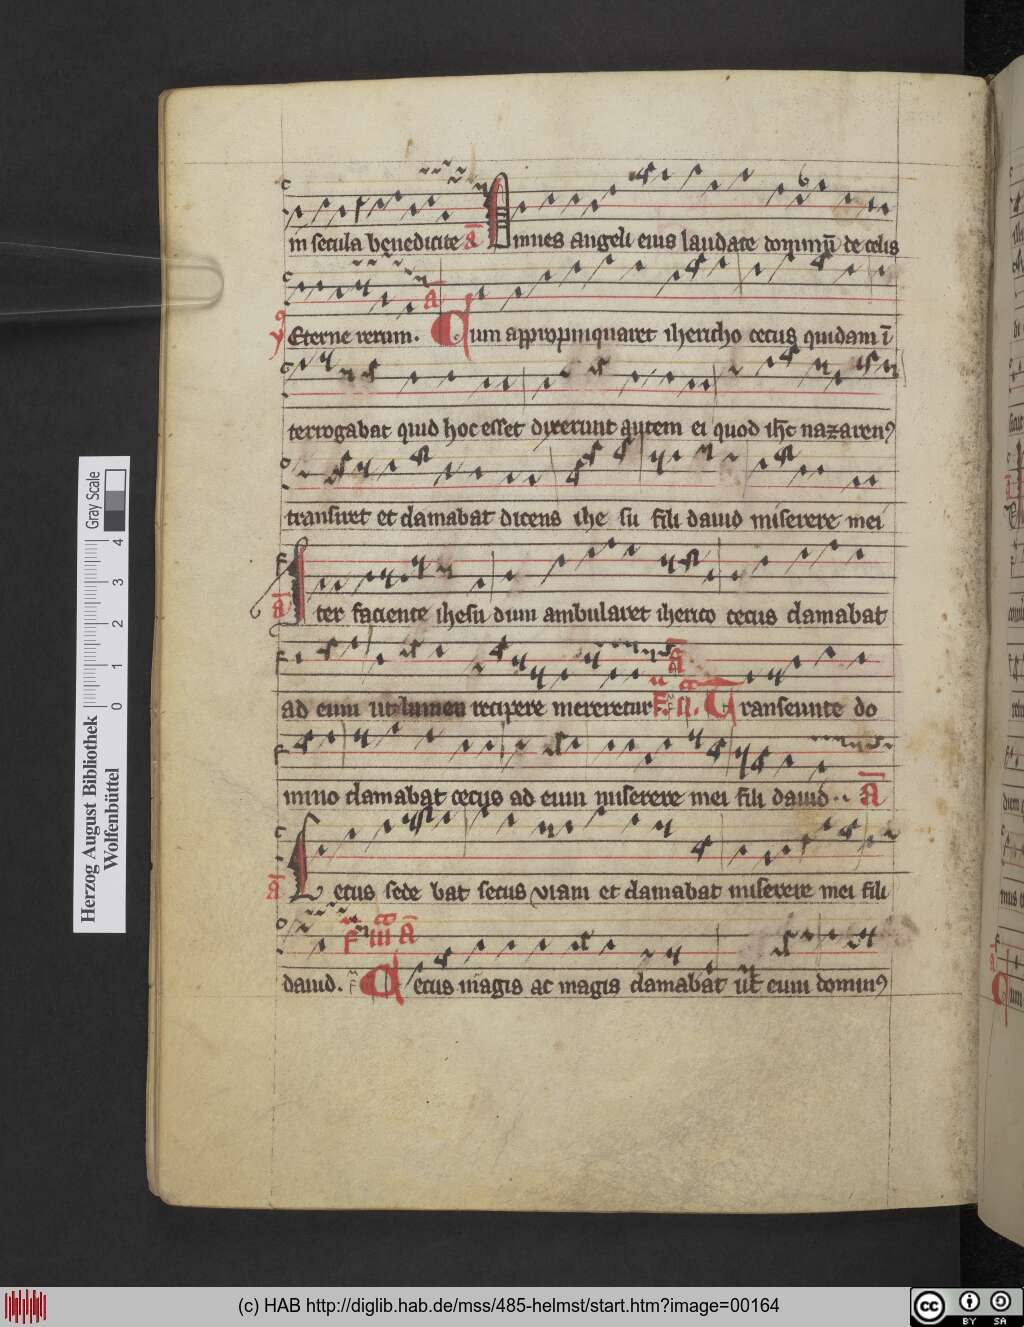 in secula benedicite a Omnes angeli eius laudate dominū de celis
Eterne rerum. Cum appropinquaret ihericho cecus quidam ī
terrogabat quid hoc esset dixerunt autem ei quod ihc nazarenꝰ
transiret et clamabat dicens ihe su fili dauid miserere mei
a Iter faciente ihesu dum ambularet iherico cecus clamabat
ad eum ut lumen recipere mereretur a Transeunte do
mino clamabat cecus ad eum miserere mei fili dauid a
a Cecus sede bat secus viam et clamabat miserere mei fili
dauid. f iii a Cecus magis ac magis clamabat ut eum dominꝰ
Herzog August Bibliothek
Wolfenbüttel
Gray Scale
0 1 2 3 4
(c) HAB http://diglib.hab.de/mss/485-helmst/start.htm?image=00164
cc BY SA